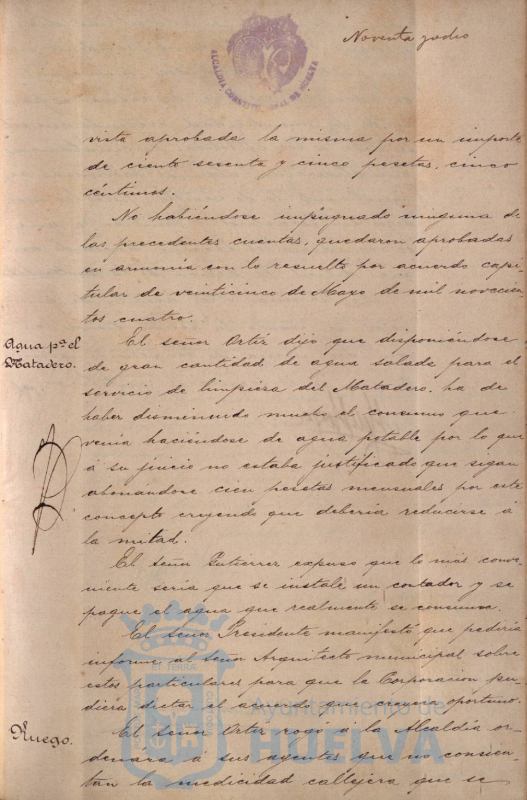 Noventa y ocho
ALCALDIA CONSTITUCIONAL DE HUELVA
vista aprobada la misma por un importe
de ciento sesenta y cinco pesetas, cinco
céntimos.
No habiéndose impugnado ninguna de
las precedentes cuentas, quedaron aprobadas
en armonía con lo resuelto por acuerdo capi
tular de veinticinco de Mayo de mil novecien
tos cuatro.
Agua pª el
Matadero.
El señor Ortíz dijo que disponiéndose
de gran cantidad de agua salada para el
servicio de limpiesa del Matadero, ha de
haber disminuido mucho el consumo que
venía haciéndose de agua potable por lo que
á su juicio no estaba justificado que sigan
abonándose cien pesetas mensuales por este
concepto creyendo que debería reducirse á
la mitad.
El señor Gutiérrez expuso que lo más conve
niente sería que se instale un contador y se
pague el agua que realmente se consuma.
El señor Presidente manifestó que pediría
informe al señor Arquitecto municipal sobre
estos particulares para que la Corporacion pu
diera dictar el acuerdo que creyera oportuno.
Ruego.
El señor Ortíz rogó á la Alcaldía or
denara á sus agentes que no consien
tan la medicidad callejera que se
Ayuntamiento de
HUELVA